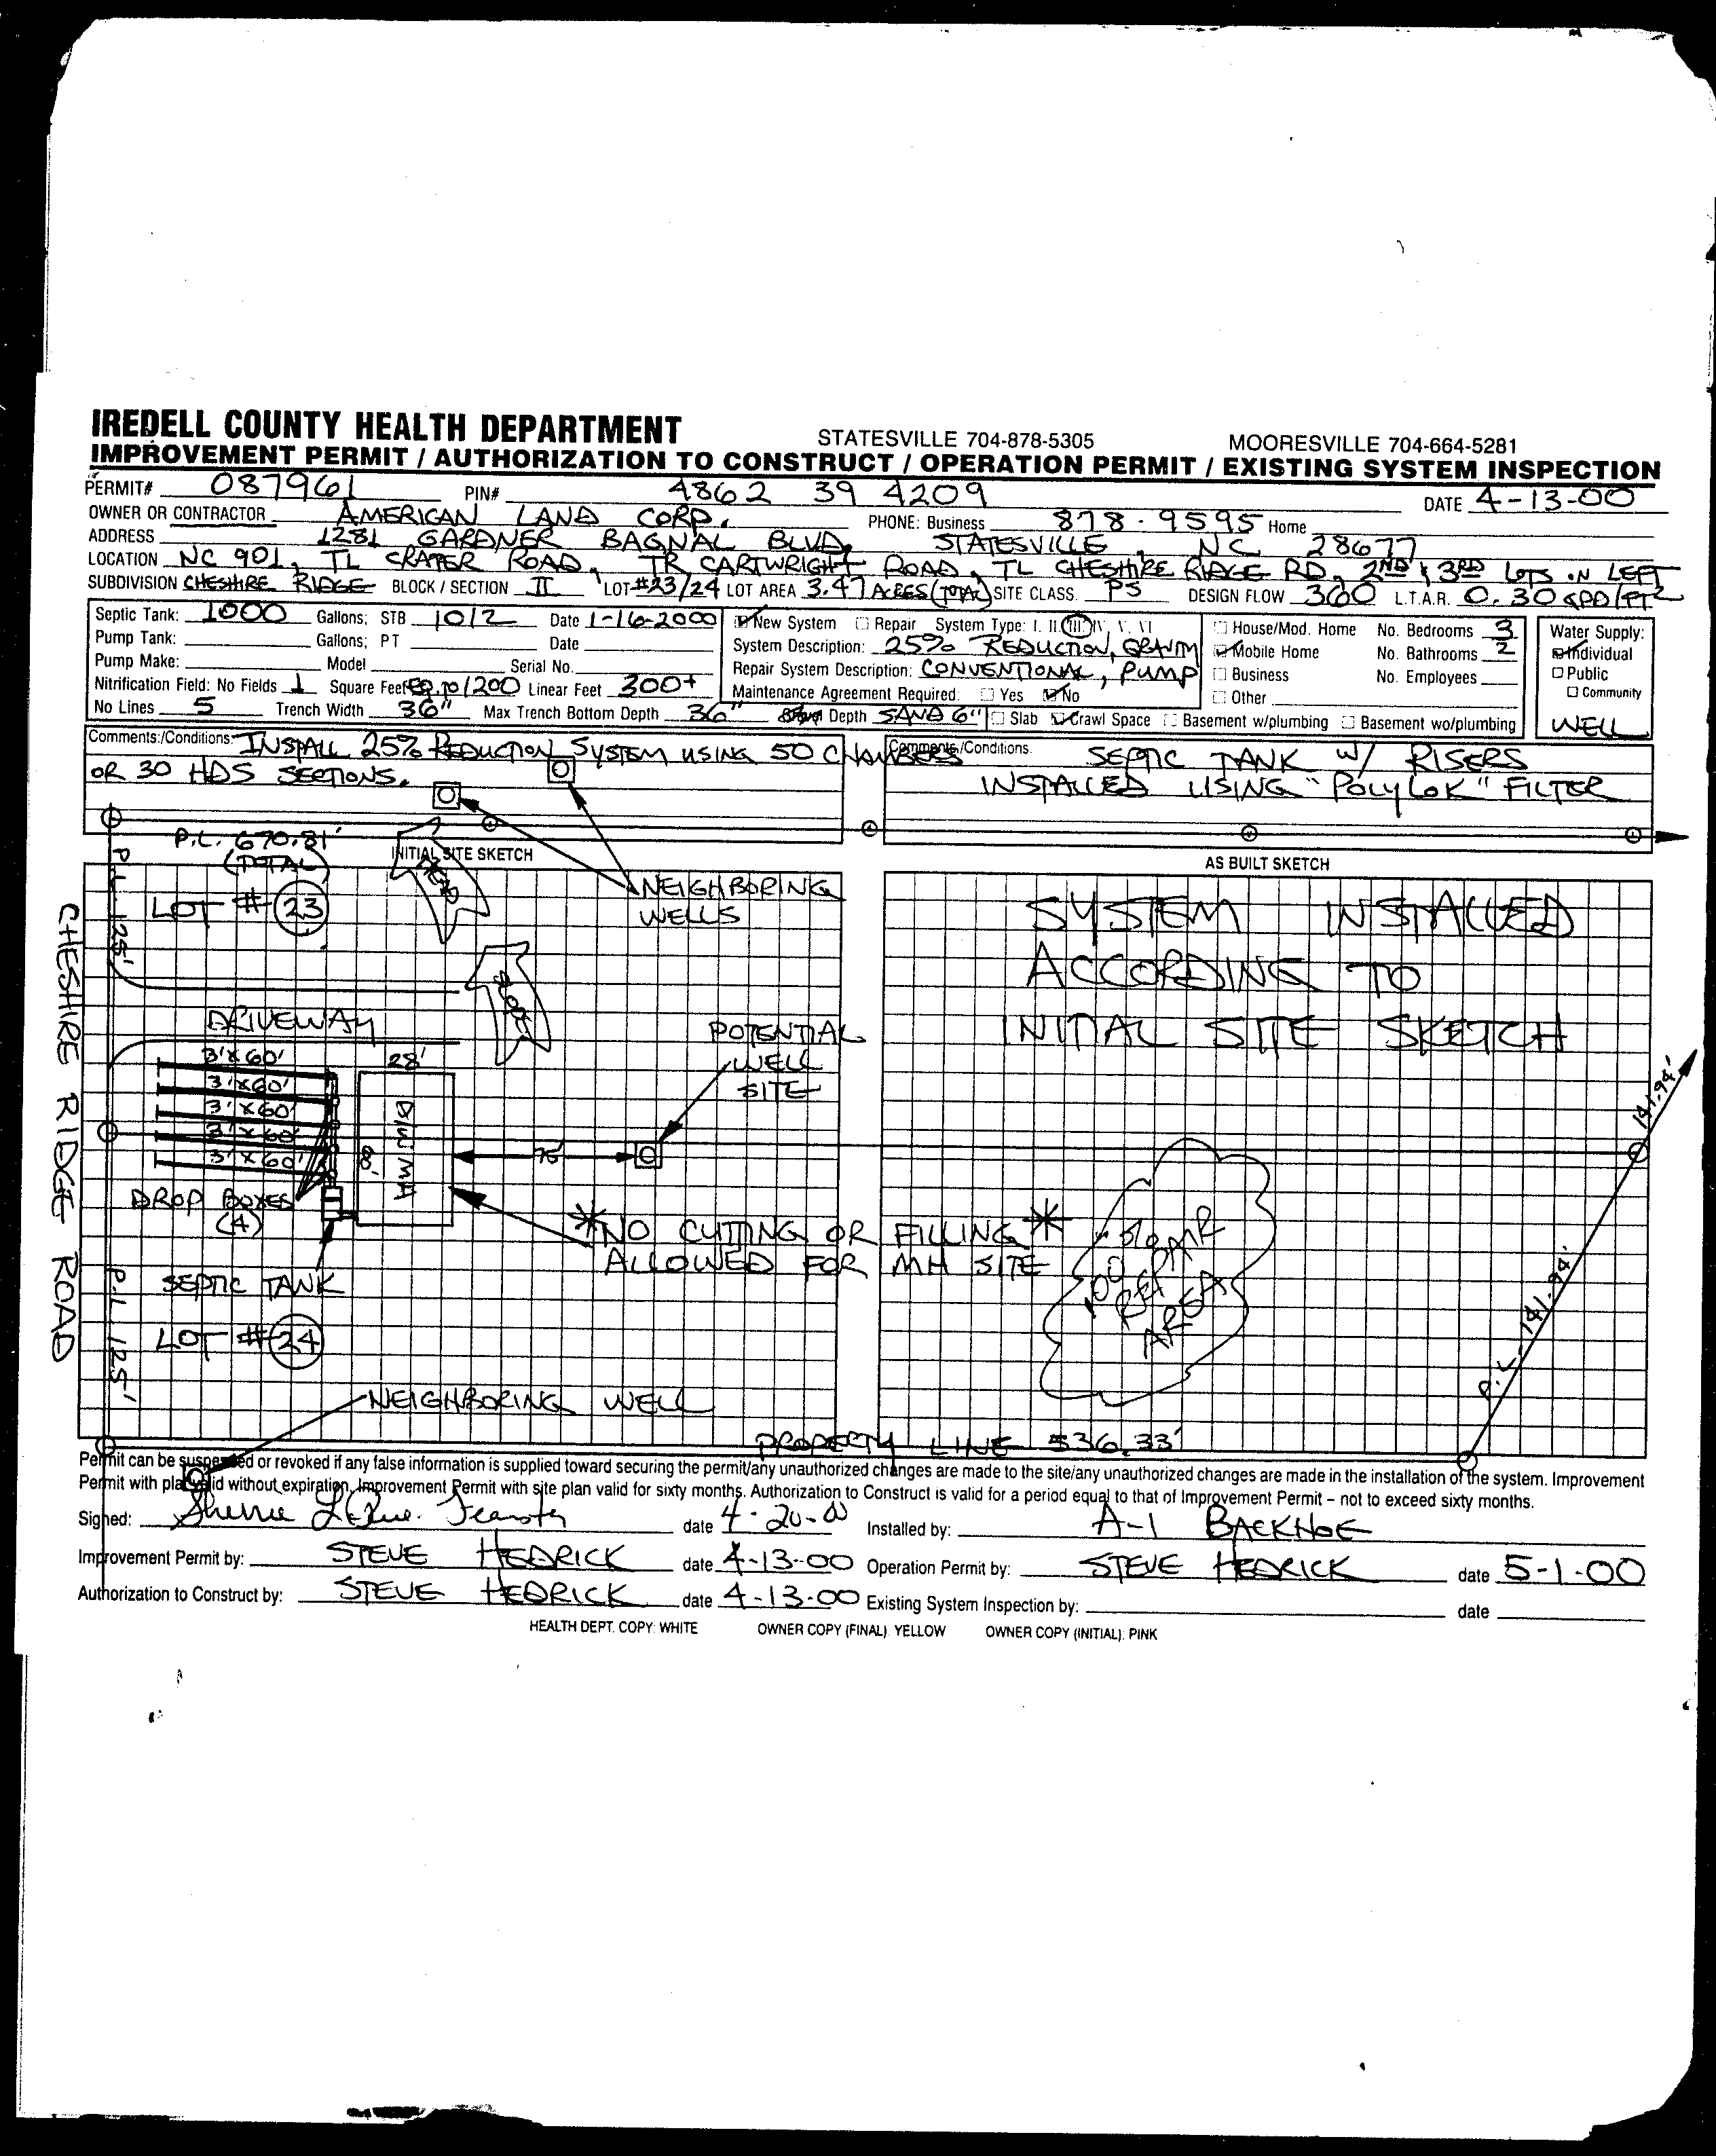 IREDELL COUNTY HEALTH DEPARTMENT STATESVILLE 704-878-5305 MOORESVILLE 704-664-5281
IMPROVEMENT PERMIT / AUTHORIZATION TO CONSTRUCT / OPERATION PERMIT / EXISTING SYSTEM INSPECTION
PERMIT# 087961 PIN# 4862 39 4209 DATE 4-13-00
OWNER OR CONTRACTOR AMERICAN LAND CORP. PHONE: Business 878-9595 Home
ADDRESS 1281 GARDNER BAGNAL BLVD, STATESVILLE, NC 28677
LOCATION NC 901, TL CRATER ROAD, TR CARTWRIGHT ROAD, TL CHESHIRE RIDGE RD, 2ND & 3RD LOTS ON LEFT
SUBDIVISION CHESHIRE RIDGE BLOCK / SECTION II LOT #23/24 LOT AREA 3.47 ACRES (TOTAL) SITE CLASS. PS DESIGN FLOW 360 L.T.A.R. 0.30 GPD/FT2
Septic Tank: 1000 Gallons; STB 1012 Date 1-16-2000 New System Repair System Type: I. II. III. IV. V. VI House/Mod. Home No. Bedrooms 3 Water Supply:
Pump Tank: Gallons; PT Date System Description: 25% REDUCTION, GRAVITY Mobile Home No. Bathrooms 2 Individual
Pump Make: Model Serial No. Repair System Description: CONVENTIONAL, PUMP Business No. Employees Public
Nitrification Field: No Fields 1 Square Feet EQ. TO 1200 Linear Feet 300+ Maintenance Agreement Required: Yes No Other Community
No Lines 5 Trench Width 36" Max Trench Bottom Depth 36" Depth SAND 6" Slab Crawl Space Basement w/plumbing Basement wo/plumbing WELL
Comments:/Conditions: INSTALL 25% REDUCTION SYSTEM USING 50 CHAMBERS
OR 30 HDS SECTIONS.
Comments:/Conditions: SEPTIC TANK W/ RISERS
INSTALLED USING "POLYLOK" FILTER
P.L. 670.81'
(TOTAL)
INITIAL SITE SKETCH
AS BUILT SKETCH
LOT # 23
NEIGHBORING
WELLS
P.L. 125'
CHESHIRE RIDGE ROAD
SLOPE
DRIVEWAY
3'X60'
3'X60'
3'X60'
3'X60'
3'X60'
28'
D/W MH
75'
POTENTIAL
WELL
SITE
DROP BOXES
(4)
SEPTIC TANK
LOT # 24
P.L. 125'
*NO CUTTING OR FILLING*
ALLOWED FOR MH SITE
NEIGHBORING WELL
PROPERTY LINE 536.33'
SYSTEM INSTALLED
ACCORDING TO
INITIAL SITE SKETCH
100%
REPAIR
AREA
141.94'
P.L. 141.94'
Permit can be suspended or revoked if any false information is supplied toward securing the permit/any unauthorized changes are made to the site/any unauthorized changes are made in the installation of the system. Improvement
Permit with plat valid without expiration, Improvement Permit with site plan valid for sixty months. Authorization to Construct is valid for a period equal to that of Improvement Permit – not to exceed sixty months.
Signed: date 4-20-00 Installed by: A-1 BACKHOE
Improvement Permit by: STEVE HEDRICK date 4-13-00 Operation Permit by: STEVE HEDRICK date 5-1-00
Authorization to Construct by: STEVE HEDRICK date 4-13-00 Existing System Inspection by: date
HEALTH DEPT. COPY: WHITE OWNER COPY (FINAL) YELLOW OWNER COPY (INITIAL): PINK